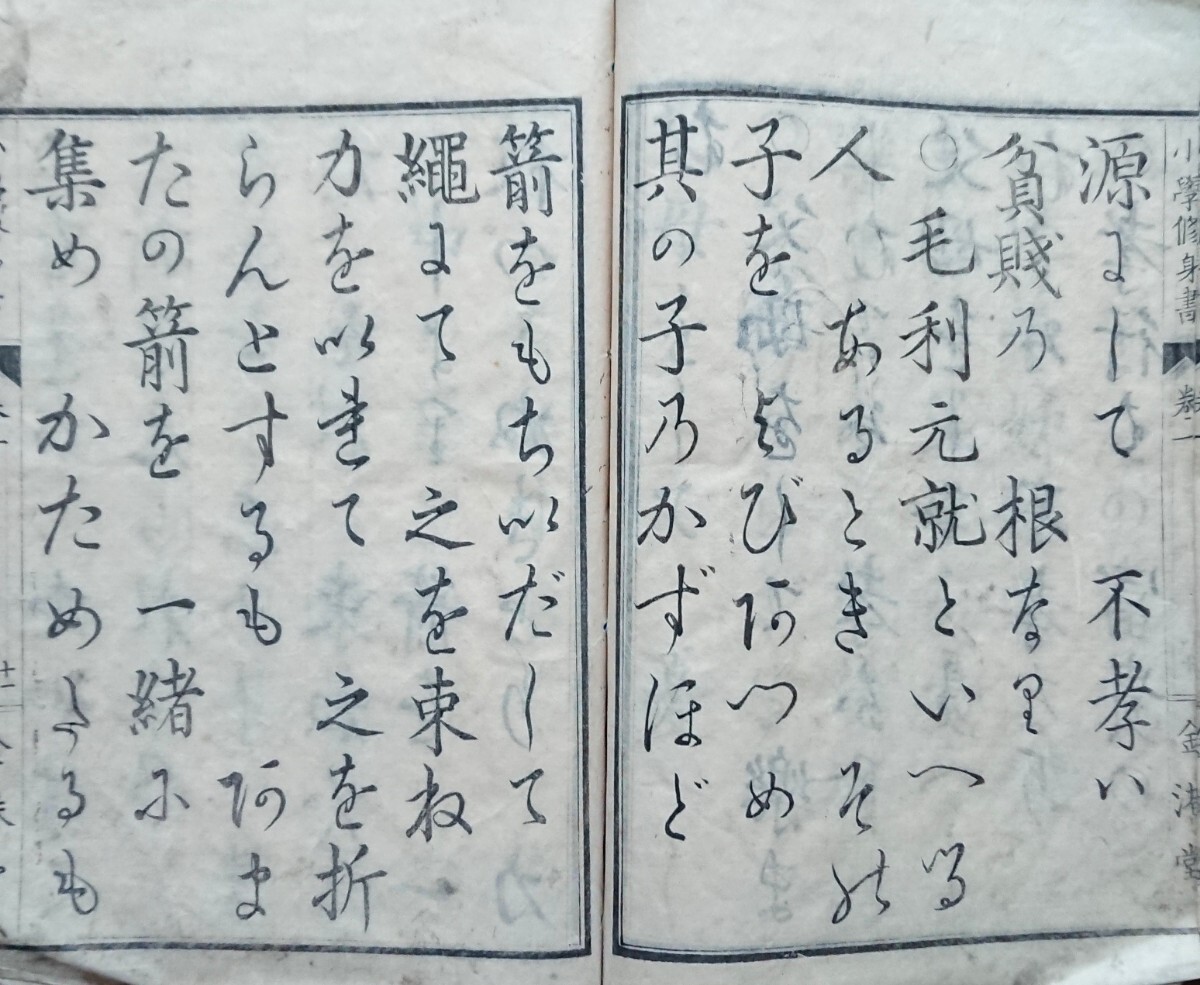 小學修身書 卷一 金港堂
源にして 不孝ハ
貧賤の 根なり
○毛利元就といへる
人 あるとき その
子を よびあつめ
其の子のかずほど
箭をもちいだして
繩にて 之を束ね
力をいれて 之を折
らんとするも あま
たの箭を 一緒に
集め かためたるも